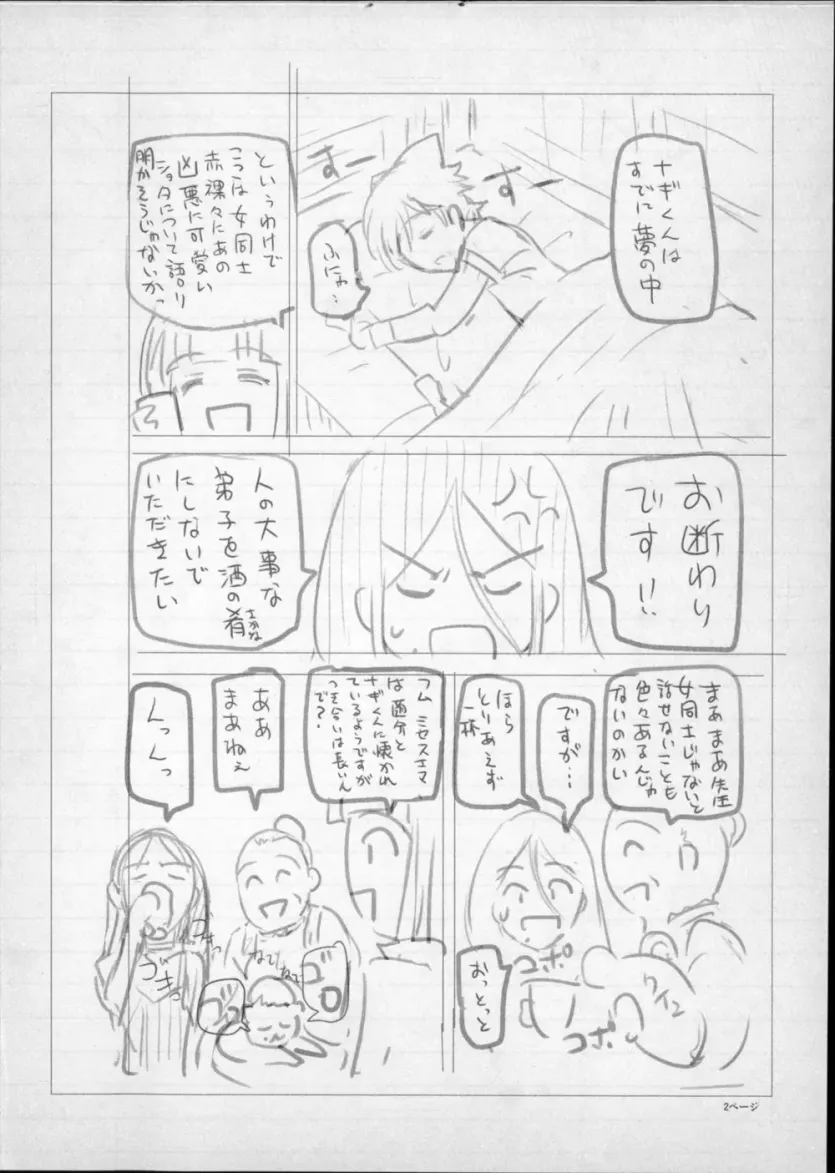 ナギくんは
すでに夢の中
すー
すー
ふにゃ…
というわけで
ここは女同士
赤裸々にあの
凶悪に可愛い
ショタについて語り
明かそうじゃないかっ
お断わり
です!!
人の大事な
弟子を酒の肴
さかな
にしないで
いただきたい
まあまあ先生
女同士じゃないと
話せないことも
色々あるんじゃ
ないのかい
ですが…
ほら
とりあえず
一杯
おっとっと
コポ
コポ
ワイン
フム ミセスエマ
は随分と
ナギくんに懐かれ
ているようですが
つき合いは長いん
で?
ああ
まあねぇ
んっんっ
ぐいきっ
なでなで
ゴロ
ゴロ
2ページ